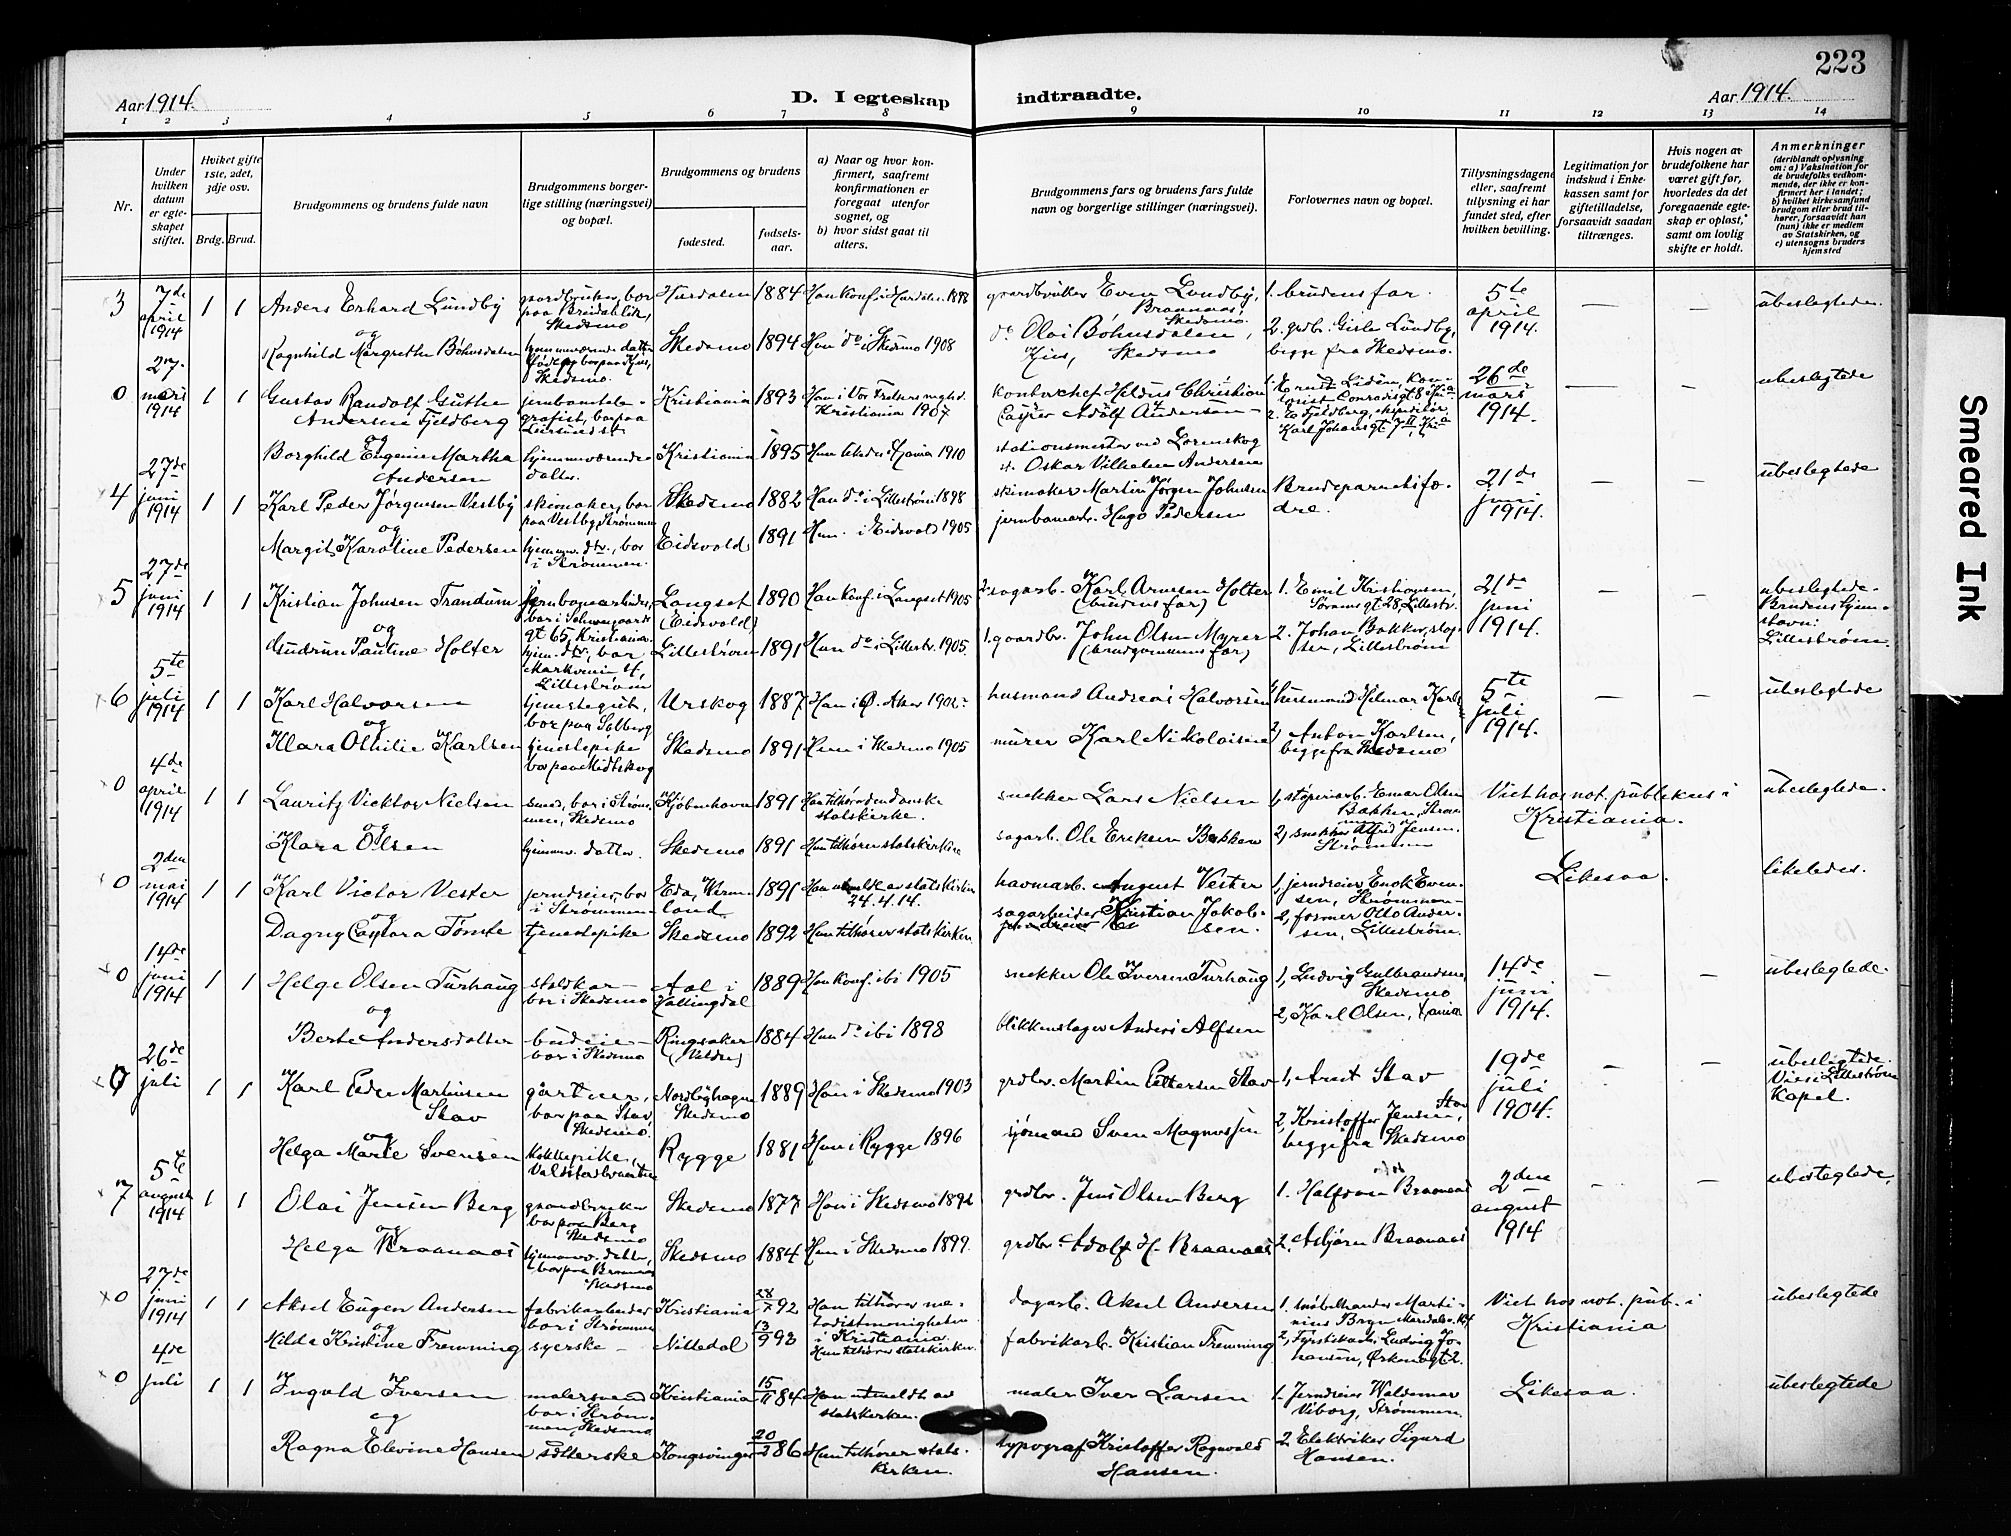 223
Aar 1914.
D. I egteskap
indtraadte.
Aar 1914.
1 2 3 4 5 6 7 8 9 10 11 12 13 14
Nr.
Under hvilken datum er egteskapet stiftet.
Hviket gifte 1ste, 2det, 3dje osv.
Brdg. Brud.
Brudgommens og brudens fulde navn
Brudgommens borgerlige stilling (næringsvei) og bopæl.
Brudgommens og brudens
fødested.
fødselsaar.
a) Naar og hvor konfirmert, saafremt konfirmationen er foregaat utenfor sognet, og
b) hvor sidst gaat til alters.
Brudgommens fars og brudens fars fulde navn og borgerlige stillinger (næringsvei).
Forlovernes navn og bopæl.
Tillysningsdagene eller, saafremt tillysning ei har fundet sted, efter hvilken bevilling.
Legitimation for indskud i Enkekassen samt for giftetilladelse, forsaavidt saadan tiltrænges.
Hvis nogen av brudefolkene har været gift før, hvorledes da det foregaaende egteskap er opløst, samt om lovlig skifte er holdt.
Anmerkninger
(deriblandt oplysning om: a) Vaksination for de brudefolks vedkommende, der ikke er konfirmert her i landet; b) hvilket kirkesamfund brudgom eller brud tilhører, forsaavidt han (hun) ikke er medlem av Statskirken, og c) utensogns bruders hjemsted
3 7de april 1914 1 1 Anders Erhard Lundby gaardbruker, bor paa Breidablik, Skedsmo Hurdalen 1884 Han konf. i Hurdalen 1898 gaardbruker Even Lundby, Braanaas, Skedsmo. 1. brudens far. 5te april 1914. — — ubeslegtede.
og
Ragnhild Margrethe Bøhnsdalen hjemmeværende datter Skedsmo 1894 Hun do i Skedsmo 1908 do Olai Bøhnsdalen, Skedsmo 2. grdb. Gisle Lundby, begge fra Skedsmo.
0 27. mars 1914 1 1 Gustav Randolf Guthe Andersen Fjeldberg Kristiania 1893 Han i Vor Frelsers Kristiania 1907 kontorchef Christian Adolf Andersen 26de mars 1914. — — ubeslegtede
og
Borghild Eugenie Martha Andersen hjemmeværende datter. Kristiania 1895 stationsmester ved Lørenskog st. Oskar Vilhelm Andersen
4 27de juni 1914 1 1 Karl Peder Jørgensen Vestby skimaker, bor paa Vestby, Strømmen Skedsmo 1882 Han do i Lillestrøm 1898 skimaker Martin Jørgen Johnsen Brudeparets fædre. 21de juni 1914. — — ubeslegtede
og
Margit Karoline Pedersen hjemmev. dtr., bor i Strømmen. Eidsvold 1891 Hun i Eidsvold 1905 jernbanearb. Hugo Pedersen
5 27de juni 1914 1 1 Kristian Johnsen Trandum jernbanearbeider, bor i Schweigaards gt 65, Kristiania. Langset (Eidsvold) 1890 Han konf. i Langset 1905 2. sagarb. Karl Arnesen Holter (brudens far) 1. Emil Kristiansen, 28, Lillestr. 21de juni 1914. — — ubeslegtede. Brudens hjemstavn: Lillestrøm.
og
Gudrun Pauline Holter hjem. dtr., bor Markveien 4, Lillestrøm Lillestrøm 1891 Hun do i Lillestr. 1905. 1. gaardbr. John Olsen Myrer (brudgommens far) 2. Johan Bakken, Lillestrøm
6 5te juli 1914 1 1 Karl Halvorsen tjenestegut, bor paa Solberg Urskog 1887 Han i Ø. Aker 1902 husmand Andreas Halvorsen 1, husmand Hilmar Karlsen 5te juli 1914. — — ubeslegtede
og
Klara Othilie Karlsen tjenestepike bor paa Midtskog Skedsmo 1891 Hun i Skedsmo 1905 murer Karl Nikolaisen 2, Anton Karlsen, begge fra Skedsmo
0 4de april 1914 1 1 Lauritz Vicktor Nielsen smed, bor i Strømmen, Skedsmo Kjøbenhavn 1891 Han tilhører den danske statskirke. snekker Lars Nielsen 1, støperiarb. Einar Olsen Bakken, Strømmen Viet hos not. publikus i Kristiania. ubeslegtede.
og
Klara Olsen hjemmev. datter. Skedsmo 1891 Hun tilhører statskirken sagarb. Ole Eriksen Bakken 2, snekker Alfred Jensen. Strømmen
0 2den mai 1914 1 1 Karl Victor Vester jerndreier, bor i Strømmen Eda, Wermland 1891 Han utmeldt av statskirken 24.4.14. havnearb. August Vester 1, jerndreier Enok Evensen, Strømmen Likesaa. likeledes.
og
Dagny Camara Tømte tjenestepike Skedsmo 1892 Hun tilhører statskirken. sagarbeider Kristian Jakobsen. 2, former Otto Andersen, Lillestrøm.
0 14de juni 1914 1 1 Helge Olsen Turhaug staldkar bor i Skedsmo Aal i Hallingdal 1889 Han konf. ibi 1905 snekker Ole Iversen Turhaug 1, Ludvig Gulbrandsen, Skedsmo 14de juni 1914. — — ubeslegtede.
og
Berte Andersdatter budeie bor i Skedsmo Ringsaker (Veldre) 1884 Hun do ibi 1898 blikkenslager Anders Alfsen 2, Karl Olsen,
0 26de juli 1 1 Karl Peder Martinsen Stav gartner, bor paa Stav, Skedsmo. Nordbyhagen Skedsmo 1889 Han i Skedsmo 1903 grdbr. Martin Pettersen Stav 1, Arnt Stav 19de juli 1904. — — ubeslegtede. Viet i Lillestrøm Kapel.
og
Helga Marie Svensen kokkepike, Rygge 1881 Hun i Rygge 1896 sjømand Sven Magnussen 2, Kristoffer Jensen, Stav begge fra Skedsmo
7 5te august 1914 1 1 Olai Jensen Berg gaardbruker bor paa Berg Skedsmo Skedsmo 1877 Han i Skedsmo 1892 grdbr. Jens Olsen Berg 1. Halfdan Braanaas 2den august 1914 — — ubeslegtede.
og
Helga Braanaas hjemmev. datter, bor paa Braanaas Skedsmo Skedsmo 1884 Hun i Skedsmo 1899. grdbr. Adolf H. Braanaas 2. Asbjørn Braanaas
0 27de juni 1914 1 1 Aksel Eugen Andersen fabrikarbeider bor i Strømmen Kristiania 92 Han tilhører metodistmenigheten i Kristiania. dagarb. Aksel Andersen Viet hos not. pub. i Kristiania ubeslegtede
og
Hilda Kristine Fremming syerske Nittedal 13/9 93 Hun tilhører statskirken. fabrikarb. Kristian Fremming
0 4de juli 1 1 Ingvald Iversen malersvend bor i Strømmen, Skedsmo Kristiania 15/11 84 Han utmeldt av statskirken. maler Iver Larsen 1. Jerndreier Waldemar Viborg, Strømmen. Likesaa. ubeslegtede
og
Ragna Elevine Hansen sætterske Kongsvinger 86 Hun tilhører statskirken. typograf Kristoffer Ragnvald Hansen. 2 Elektriker Sigurd Hansen.
Smeared Ink